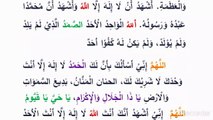 وَالْعَظَمَةِ. أَشْهَدُ أَنْ لَا إِلٰهَ إِلَّا اللَّهُ وَأَشْهَدُ أَنَّ مُحَمَّدًا
عَبْدُهُ وَرَسُولُهُ. اللَّهُ الْوَاحِدُ الْأَحَدُ الصَّمَدُ الَّذِي لَمْ يَلِدْ
وَلَمْ يُولَدْ، وَلَمْ يَكُنْ لَهُ كُفُوًا أَحَدٌ
اللَّهُمَّ إِنِّي أَسْأَلُكَ بِأَنَّ لَكَ الْحَمْدُ لَا إِلٰهَ إِلَّا أَنْتَ
وَحْدَكَ لَا شَرِيكَ لَكَ، الْحَنَانُ، الْمَنَّانُ، بَدِيعُ السَّمٰوَاتِ
وَالْأَرْضِ يَا ذَا الْجَلَالِ وَالْإِكْرَامِ، يَا حَيُّ يَا قَيُّومُ
اللَّهُمَّ إِنِّي أَشْهَدُ أَنَّكَ أَنْتَ اللَّهُ لَا إِلٰهَ إِلَّا أَنْتَ الْأَحَدُ